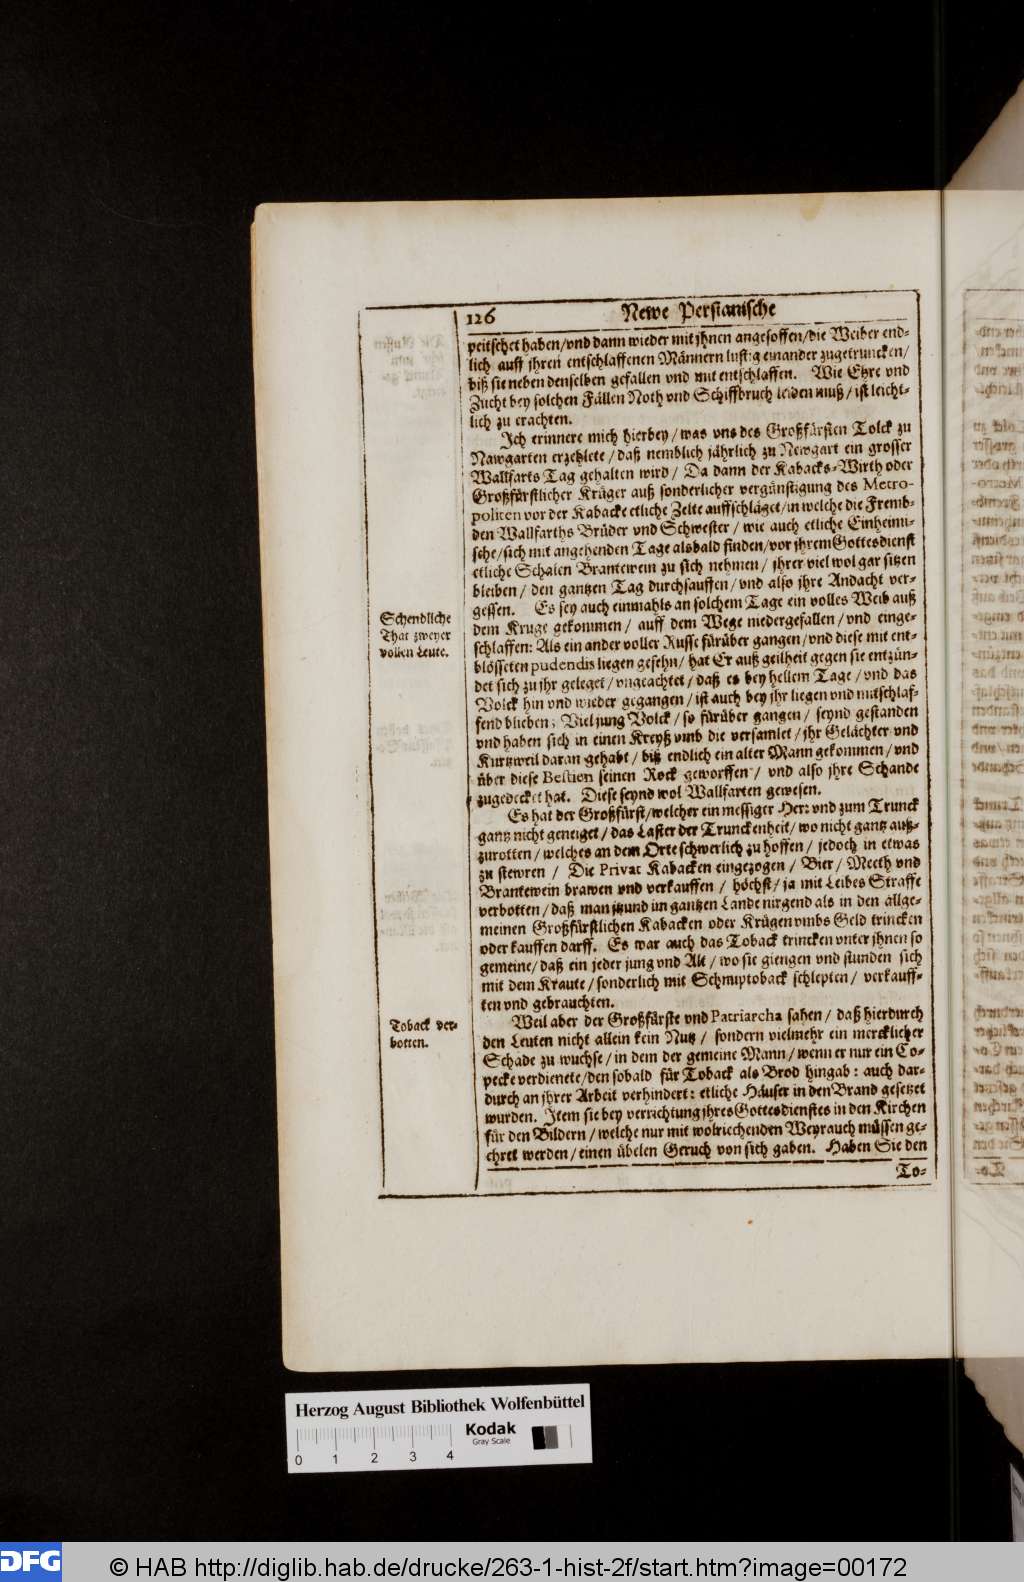 126 Newe Persianische
peitschet haben/vnd dann wieder mit jhnen angesoffen/die Weiber end-
lich auff jhren entschlaffenen Männern lustig einander zugetruncken/
biß sie neben denselben gefallen vnd mit entschlaffen. Wie Ehre vnd
Zucht bey solchen Fällen Noth vnd Schiffbruch leiden muß/ist leicht-
lich zu erachten.
Ich erinnere mich hierbey/was vns des Großfürsten Tolck zu
Nawgarten erzehlete/daß nemblich jährlich zu Newgart ein grosser
Wallfarts Tag gehalten wird/Da dann der Kabacks-Wirth oder
Großfürstlicher Krüger auß sonderlicher vergünstigung des Metro-
politen vor der Kabacke etliche Zelte auffschläget/in welche die Fremb-
den Wallfarths Brüder vnd Schwester/wie auch etliche Einheimi-
sche/sich mit angehenden Tage alsbald finden/vor jhrem Gottesdienst
etliche Schalen Brantewein zu sich nehmen/jhrer viel wol gar sitzen
bleiben/den gantzen Tag durchsauffen/vnd also jhre Andacht ver-
gessen. Es sey auch einmahls an solchem Tage ein volles Weib auß
dem Kruge gekommen/auff dem Wege niedergefallen/vnd einge-
schlaffen: Als ein ander voller Russe fürüber gangen/vnd diese mit ent-
blösseten pudendis liegen gesehn/hat Er auß geilheit gegen sie entzün-
det sich zu jhr geleget/vngeachtet/daß es bey hellem Tage/vnd das
Volck hin vnd wieder gegangen/ist auch bey jhr liegen vnd mitschlaf-
fend blieben; Viel jung Volck/so fürüber gangen/seynd gestanden
vnd haben sich in einen Kreyß vmb die versamlet/jhr Gelächter vnd
Kurtzweil daran gehabt/biß endlich ein alter Mann gekommen/vnd
über diese Bestien seinen Rock geworffen/vnd also jhre Schande
zugedecket hat. Diese seynd wol Wallfarten gewesen.
Schendliche
That zweyer
vollen Leute.
Es hat der Großfürst/welcher ein messiger Herr vnd zum Trunck
gantz nicht geneiget/das Laster der Trunckenheit/wo nicht gantz auß-
zurotten/welches an dem Orte schwerlich zu hoffen/jedoch in etwas
zu stewren/Die Privat Kabacken eingezogen/Bier/Meeth vnd
Brantewein brawen vnd verkauffen/höchst/ja mit Leibes Straffe
verbotten/daß man jtzund im gantzen Lande nirgend als in den allge-
meinen Großfürstlichen Kabacken oder Krügen vmbs Geld trincken
oder kauffen darff. Es war auch das Toback trincken vnter jhnen so
gemeine/daß ein jeder jung vnd Alt/wo sie giengen vnd stunden sich
mit dem Kraute/sonderlich mit Schnuptoback schlepten/verkauff-
ten vnd gebrauchten.
Toback ver-
botten.
Weil aber der Großfürste vnd Patriarcha sahen/daß hierdurch
den Leuten nicht allein kein Nutz/sondern vielmehr ein mercklicher
Schade zu wuchse/in dem der gemeine Mann/wenn er nur ein Co-
pecke verdienete/den sobald für Toback als Brod hingab: auch dar-
durch an jhrer Arbeit verhindert: etliche Häuser in den Brand gesetzet
wurden. Item sie bey verrichtung jhres Gottesdienstes in den Kirchen
für den Bildern/welche nur mit wolriechenden Weyrauch müssen ge-
ehret werden/einen übelen Geruch von sich gaben. Haben Sie den
To-
Herzog August Bibliothek Wolfenbüttel
Kodak
Gray Scale
0 1 2 3 4
DFG © HAB http://diglib.hab.de/drucke/263-1-hist-2f/start.htm?image=00172